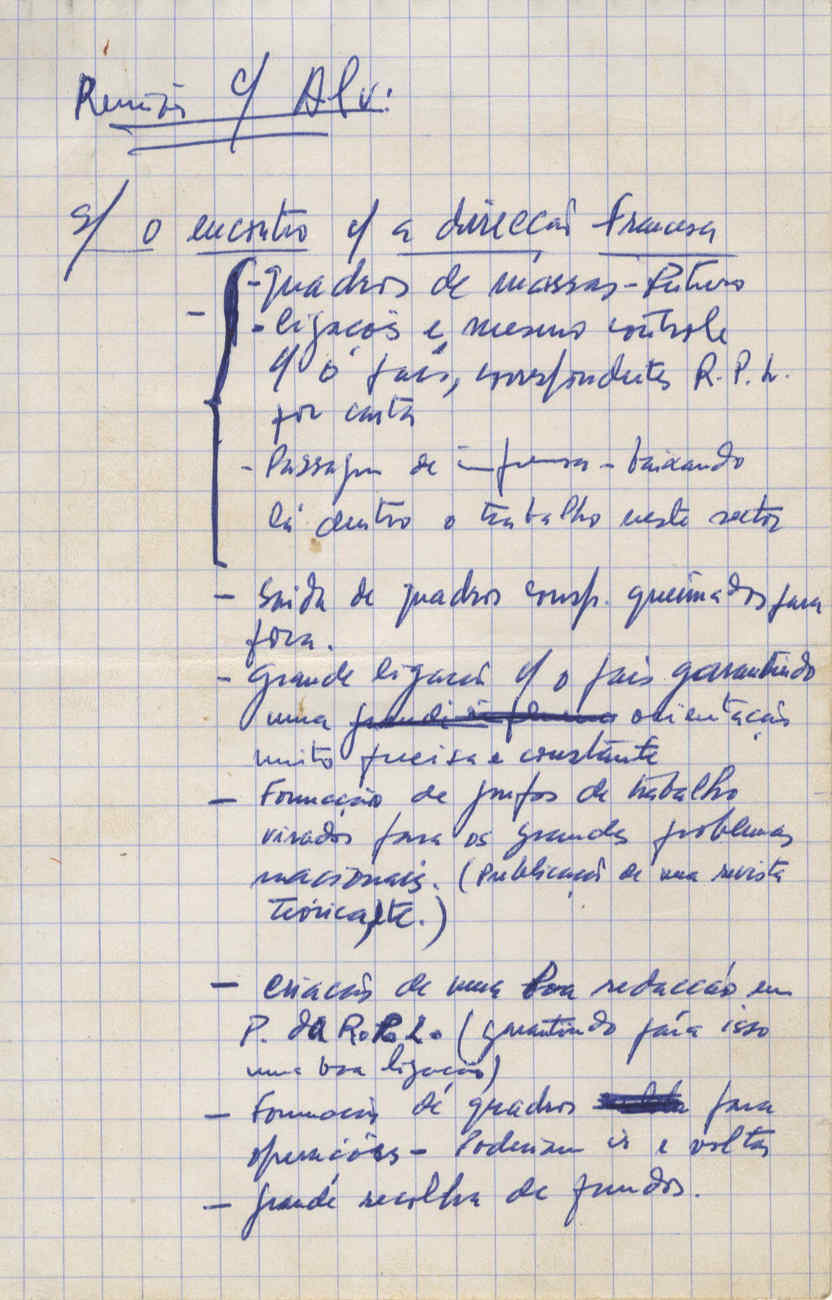 Reunião c/ Alv.:
s/ o encontro c/ a direcção francesa
- - quadros de massas - futuro
- ligações e mesmo controle
c/ o país, correspondentes R.P.L.
por carta
- Passagem de imprensa - baixando
lá dentro o trabalho neste sector
- Saída de quadros consp. queimados para
fora.
- Grande ligação c/ o país garantindo
uma orientação
muito precisa e constante
- Formação de grupos de trabalho
virados para os grandes problemas
nacionais. (Publicação de uma revista
teórica, etc.)
- Criação de uma boa redacção em
P. da R.P.L. (garantindo para isso
uma boa ligação)
- Formação de quadros para
operações - Poderiam ir e voltar
- grande recolha de fundos.